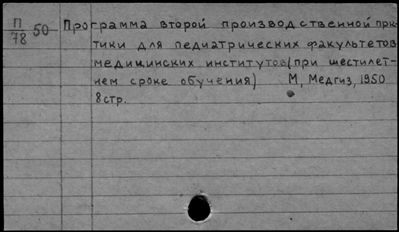 П 50 Программа второй производственной прак-
78 тики для педиатрических факультетов
медицинских институтов (при шестилет-
нем сроке обучения) М, Медгиз, 1950
8 стр.